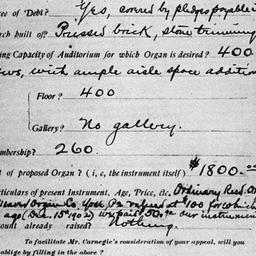 ce of Debt? Yes, covered by pledges payable i
rch built of? Pressed brick, stone trimming
ing Capacity of Auditorium for which Organ is desired? 400
ews, with ample aisle space addition
Floor? 400
Gallery? No gallery.
embership? 260
t of proposed Organ? ( i, e, the instrument itself ) $1800.00
articulars of present Instrument, Age, Price, etc. Ordinary Reed Or
Weaver Organ Co. York, Pa valued at $100 for which
ago (Dec. 15th 1902) we paid 50.00 our instrument
ount already raised? Nothing.
To facilitate Mr. Carnegie's consideration of your appeal, will you
oblige by filling in the above ?